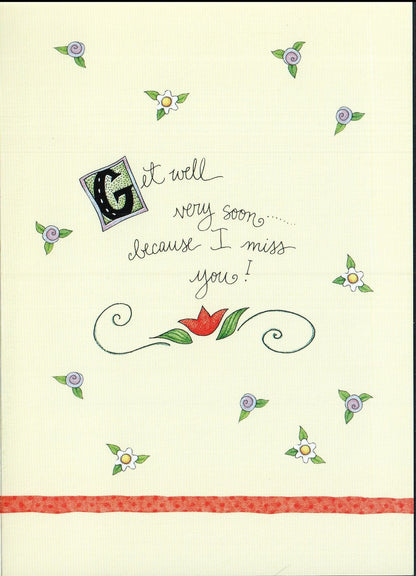 Get well
very soon......
because I miss
you!